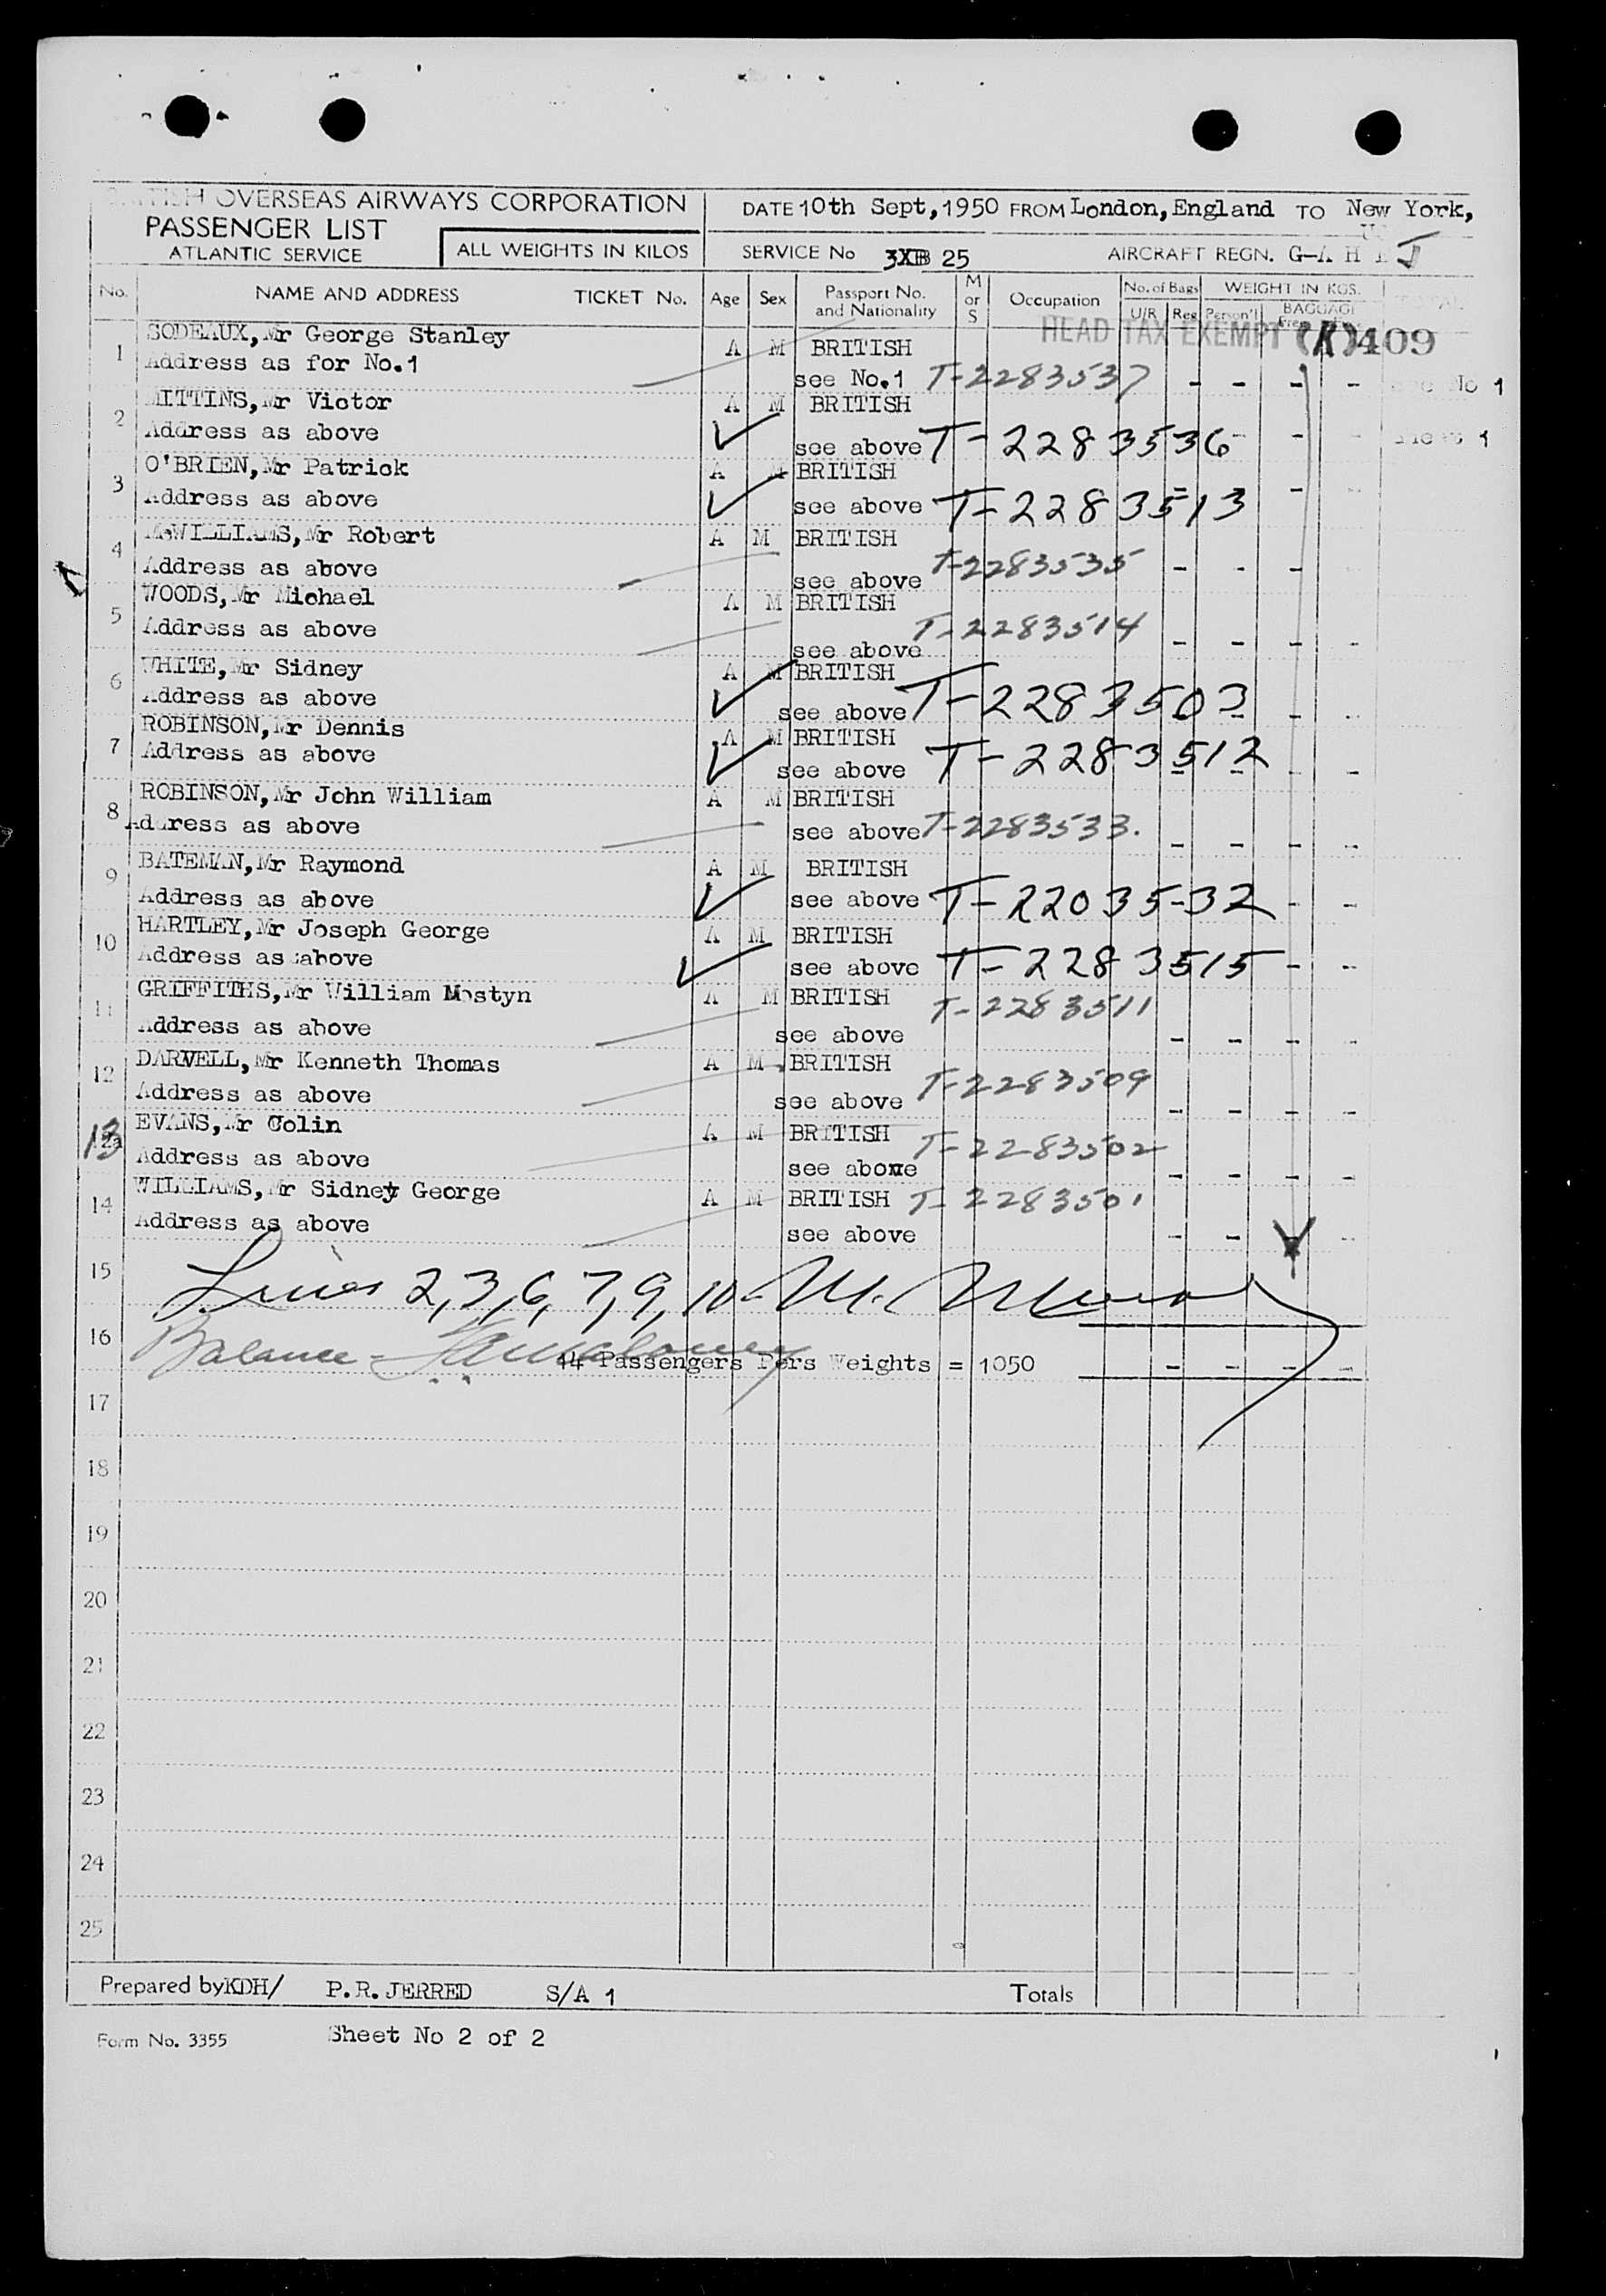 OVERSEAS AIRWAYS CORPORATION
PASSENGER LIST
ATLANTIC SERVICE
ALL WEIGHTS IN KILOS
DATE 10th Sept,1950 FROM London,England TO New York,
SERVICE No 3XB 25 AIRCRAFT REGN. G-A H J
No. NAME AND ADDRESS TICKET No. Age Sex Passport No. and Nationality M or S Occupation No. of Bags U/R Reg WEIGHT IN KGS. Person'l BAGGAGE
HEAD TAX EXEMPT 409
1 SODEAUX,Mr George Stanley A M BRITISH
Address as for No.1 see No.1 T-2283537 - - - - No 1
2 MITTINS,Mr Victor A M BRITISH
Address as above see above T-2283536 - - - 1
3 O'BRIEN,Mr Patrick A M BRITISH
Address as above see above T-2283513 - - - -
4 McWILLIAMS,Mr Robert A M BRITISH
Address as above see above T-2283535 - - -
5 WOODS,Mr Michael A M BRITISH
Address as above see above T-2283514 - - - -
6 WHITE,Mr Sidney A M BRITISH
Address as above see above T-2283503 - - -
7 ROBINSON,Mr Dennis A M BRITISH
Address as above see above T-2283512 - - - -
8 ROBINSON,Mr John William A M BRITISH
Address as above see above T-2283533. - - - -
9 BATEMAN,Mr Raymond A M BRITISH
Address as above see above T-2203532 - -
10 HARTLEY,Mr Joseph George A M BRITISH
Address as above see above T-2283515 - -
11 GRIFFITHS,Mr William Mostyn A M BRITISH T-2283511
Address as above see above - - - -
12 DARVELL,Mr Kenneth Thomas A M BRITISH
Address as above see above T-2283509 - - - -
13 EVANS,Mr Colin A M BRITISH T-2283502
Address as above see above - - - -
14 WILLIAMS,Mr Sidney George A M BRITISH T-2283501
Address as above see above - - -
15 Lines 2,3,6,7,9,10- M.
16 Balance -
14 Passengers Pers Weights = 1050 - - - -
17
18
19
20
21
22
23
24
25
Prepared by KDH/ P.R.JERRED S/A 1 Totals
Form No. 3355 Sheet No 2 of 2